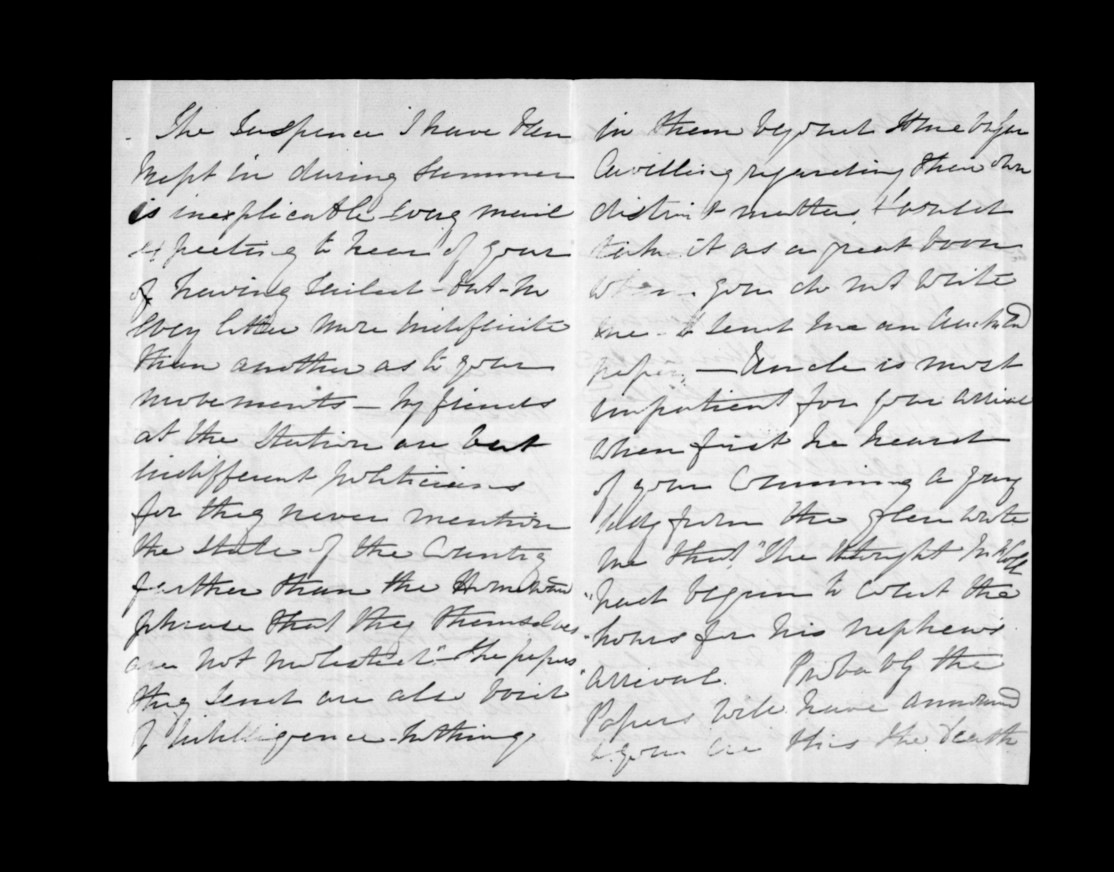 The Suspence I have been
kept in during summer
is inexplicable every mail
expecting to hear of your
of having Sailed - but - no
every letter more indefinite
than another as to your
movements - My friends
at the Station are but
indifferent politicians
for they never mention
the state of the Country
further than the
phrase that they themselves
are not molested" - the papers
they send are also void
of intelligence nothing
in them beyond some
Cavilling regarding their own
district matters, I would
take it as a great boon
when you do not write
me - to send me an Auckld
paper. — Uncle is most
impatient for your arrival
when first he heard
of your Comming a
lady from the Glen wrote
me that "The
"had begun to count the
"hours for his nephews
arrival. Probably the
Papers will have announced
to you ere this the death